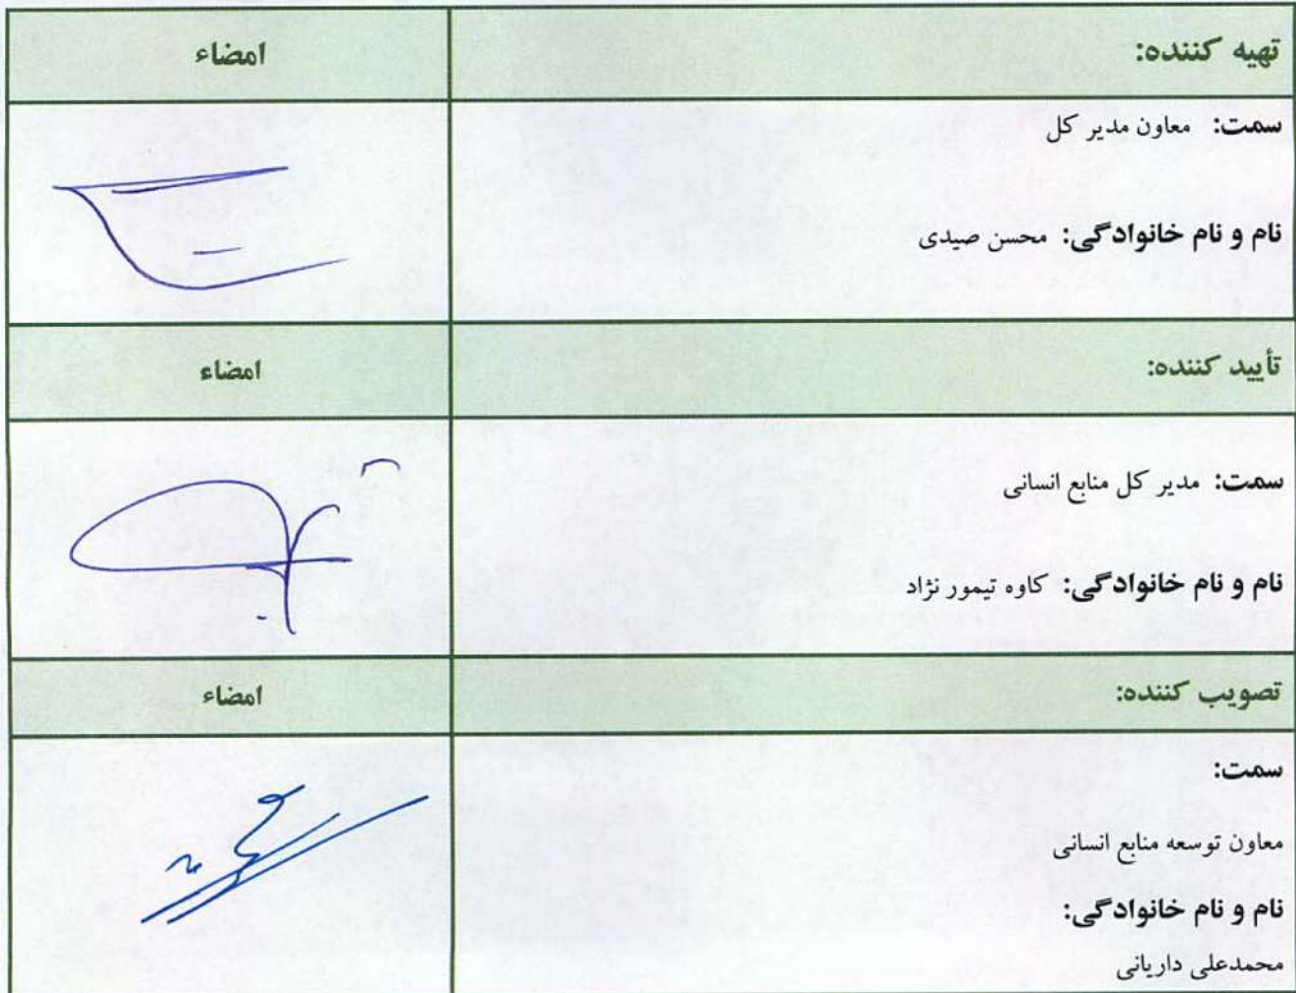 تهیه کننده: امضاء
سمت: معاون مدیر کل
نام و نام خانوادگی: محسن صیدی
تأیید کننده: امضاء
سمت: مدیر کل منابع انسانی
نام و نام خانوادگی: کاوه تیمور نژاد
تصویب کننده: امضاء
سمت:
معاون توسعه منابع انسانی
نام و نام خانوادگی:
محمدعلی داریانی